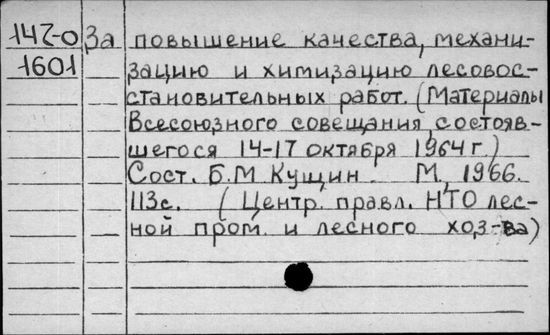 142-0 За повышение качества, механи-
1601 зацию и химизацию лесовос-
становительных работ. (Материалы
Всесоюзного совещания, состояв-
шегося 14-17 октября 1964 г.)
Сост. Б.М. Кущин. М., 1966.
113с. (Центр. правл. НТО лес-
ной пром. и лесного хоз-ва)